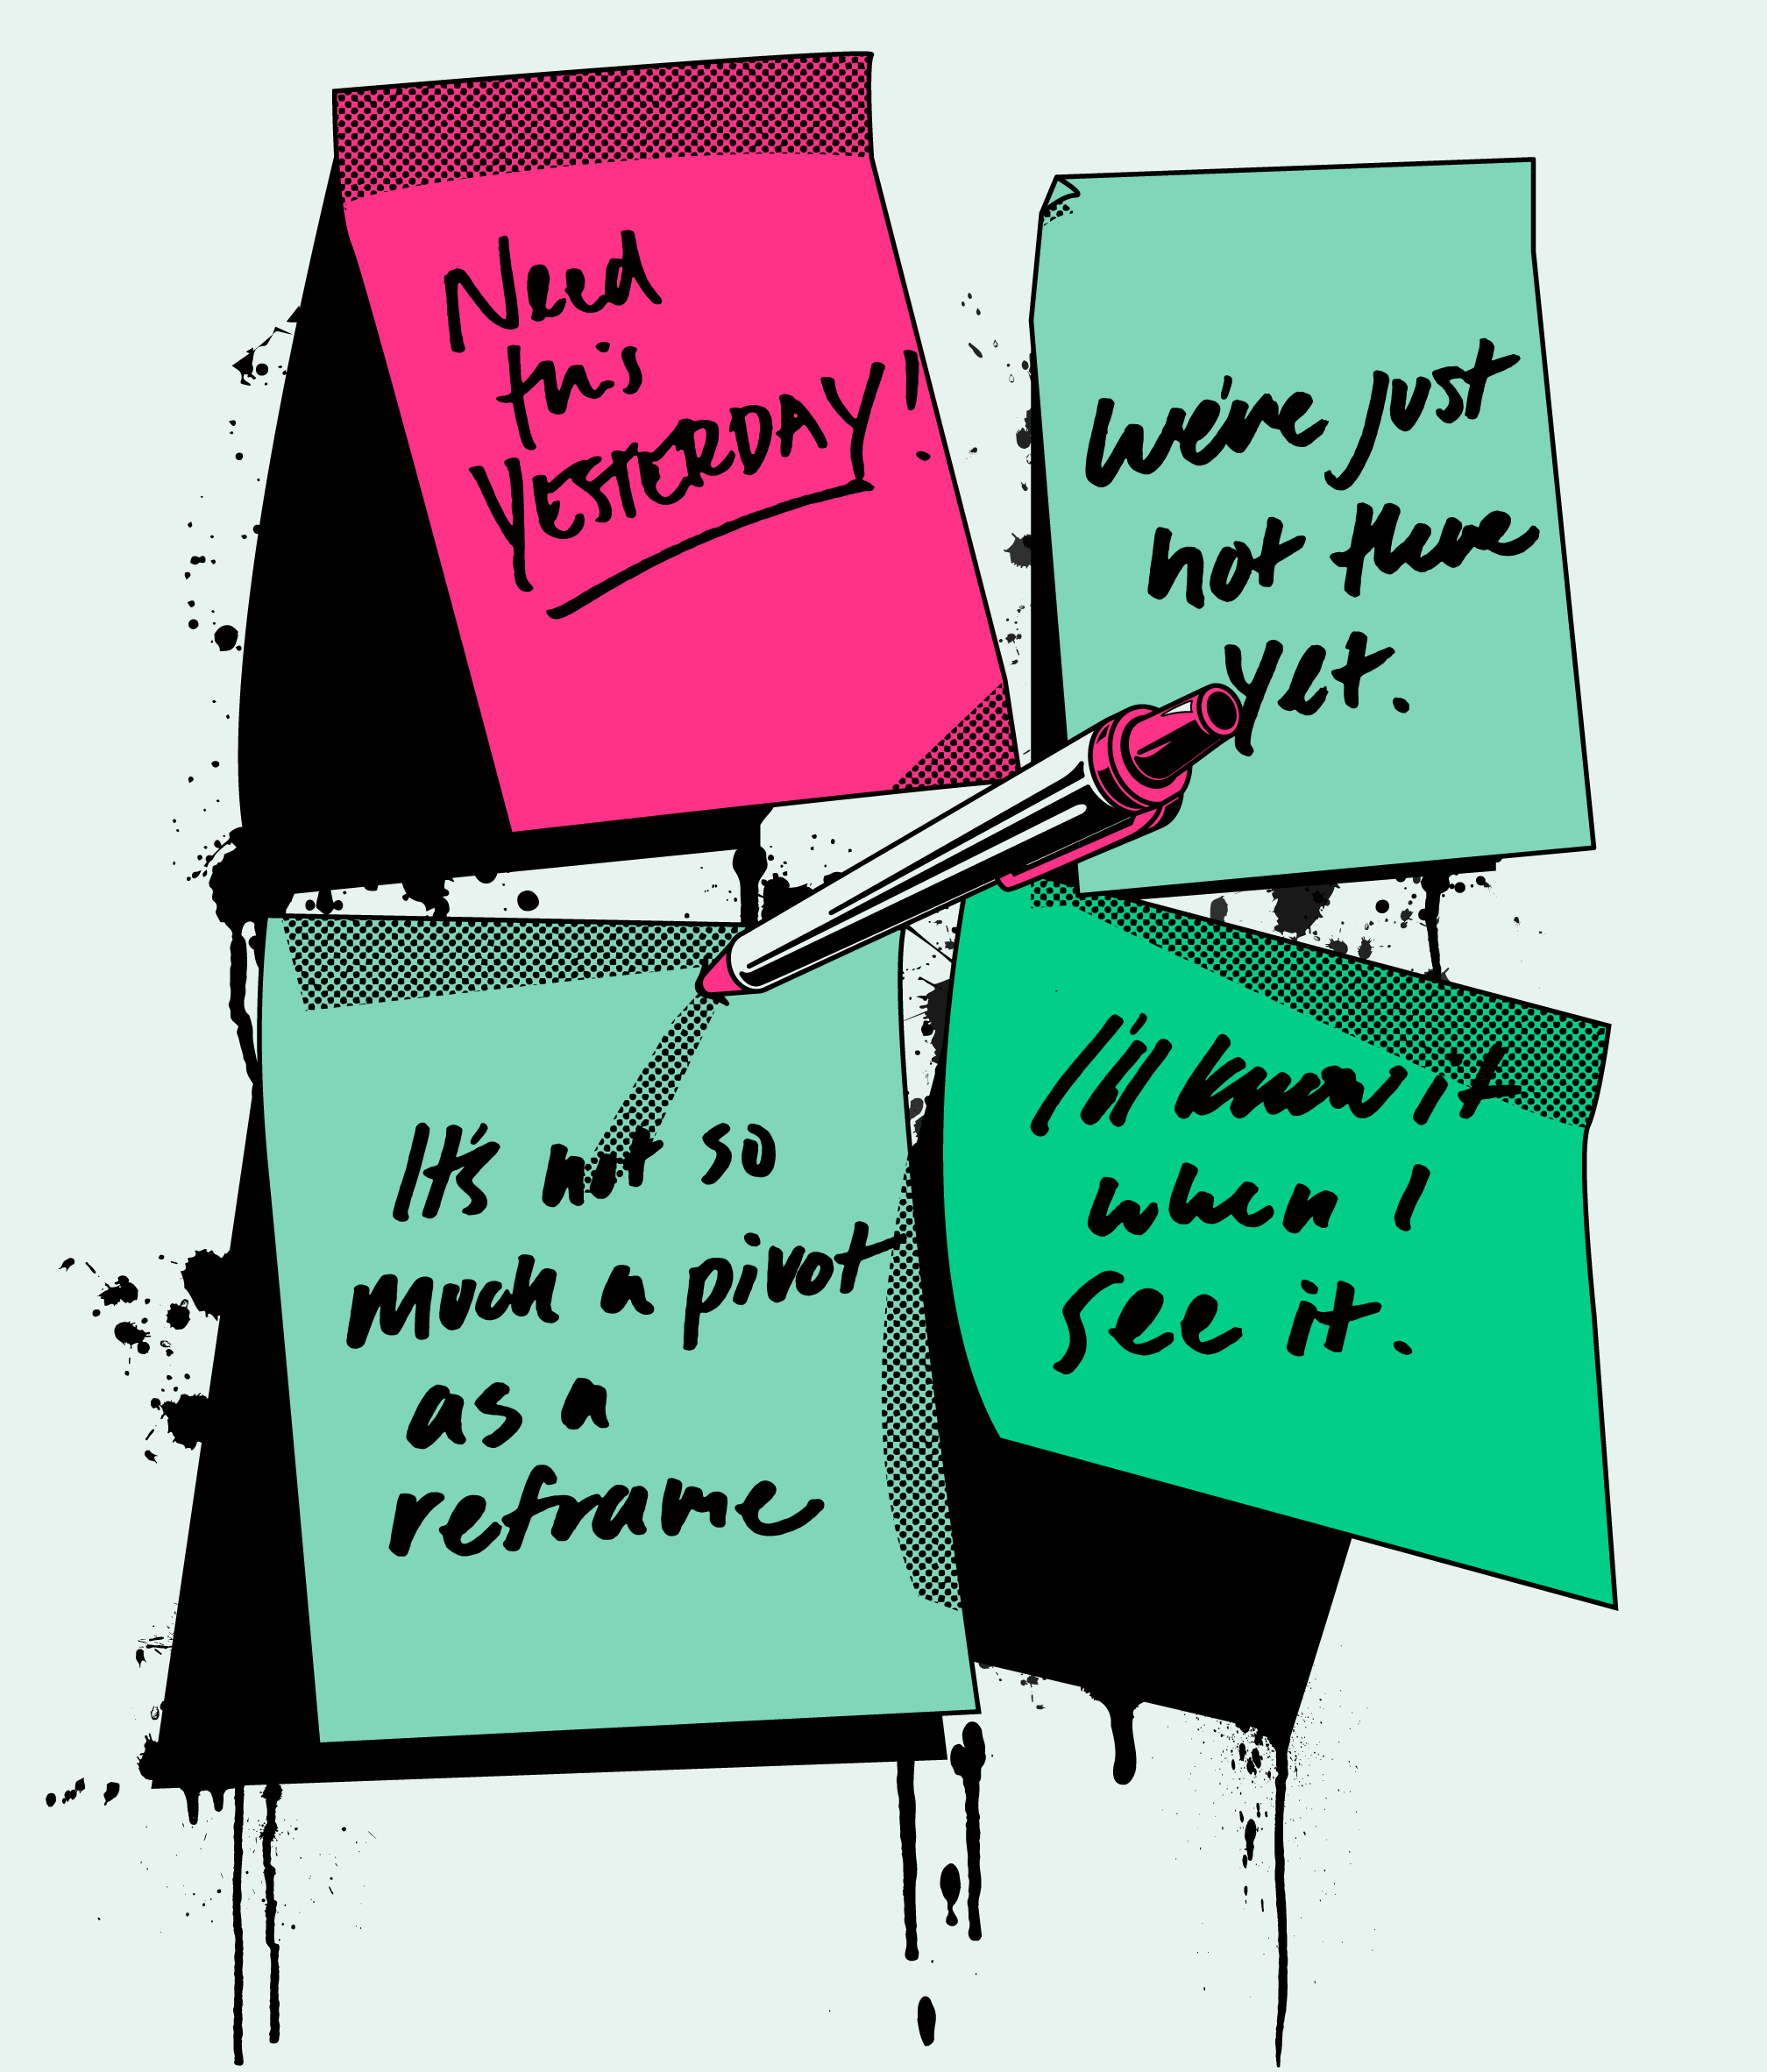 Need
this
YESTERDAY!
We've just
not there
yet.
It's not so
much a pivot
as a
reframe
I'll know it
when I
see it.